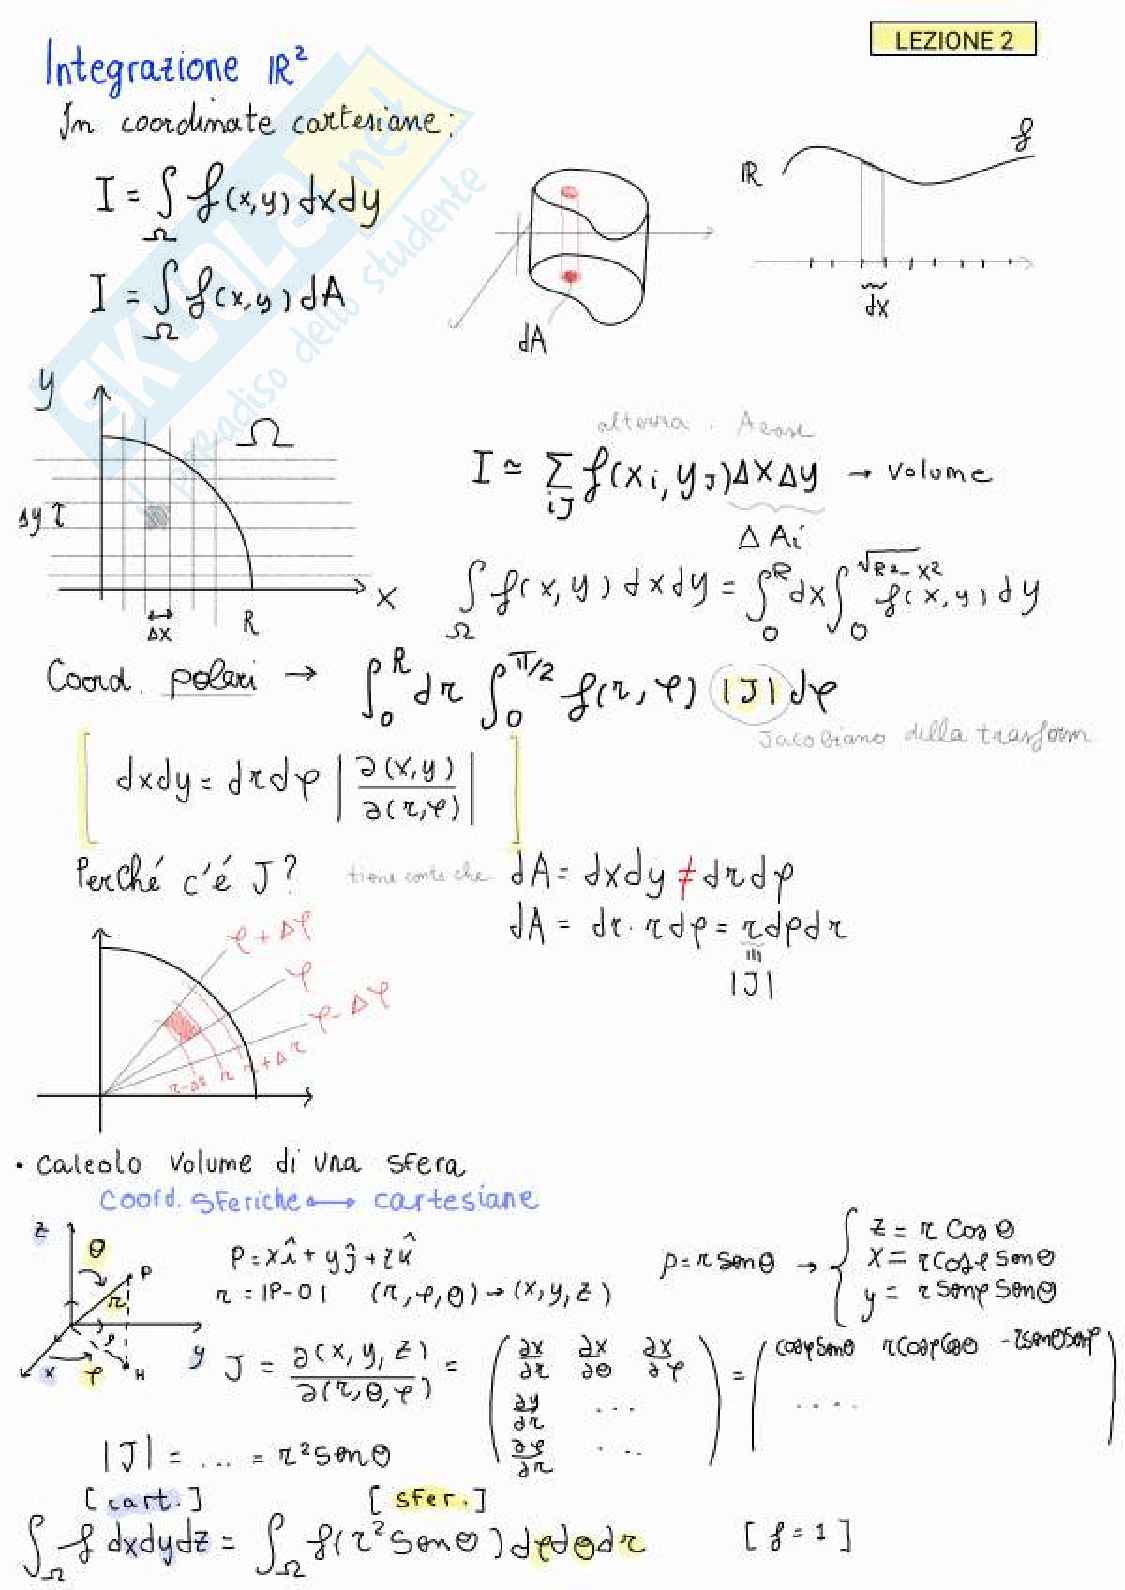 LEZIONE 2
Integrazione ℝ²
In coordinate cartesiane:
I = ∫_Ω f(x,y) dxdy
I = ∫_Ω f(x,y) dA
dA
ℝ
f
dx
SKUOLA.net
il paradiso dello studente
y
Ω
Δy
Δx
R
x
altezza · Abase
I ≃ Σ_{iJ} f(x_i, y_J) ΔxΔy → volume
ΔA_i
∫_Ω f(x,y) dxdy = ∫_0^R dx ∫_0^{√(R²-x²)} f(x,y) dy
Coord. polari → ∫_0^R dr ∫_0^{π/2} f(r,φ) |J| dφ
Jacobiano della trasform
[ dxdy = drdφ | ∂(x,y)/∂(r,φ) | ]
Perché c'é J? tiene conto che dA = dxdy ≠ drdφ
dA = dr · rdφ = rdφdr
|J|
φ + Δφ
φ
φ - Δφ
r-Δr r r+Δr
• Calcolo volume di una sfera
Coord. sferiche ⟷ cartesiane
z
θ
P
r
ρ
y
x
φ
H
P = xî + yĵ + zk̂
r = |P-O| (r,φ,θ) → (x,y,z)
ρ = r senθ → { z = r cosθ
x = r cosφ senθ
y = r senφ senθ
J = ∂(x,y,z)/∂(r,θ,φ) = ( ∂x/∂r ∂x/∂θ ∂x/∂φ ) = ( cosφsenθ rcosφcosθ -rsenθsenφ )
∂y/∂r ... ....
∂φ/∂r ...
|J| = ... = r²senθ
[cart.] [sfer.]
∫_Ω f dxdydz = ∫_Ω f(r²senθ) dφdθdr [f = 1]